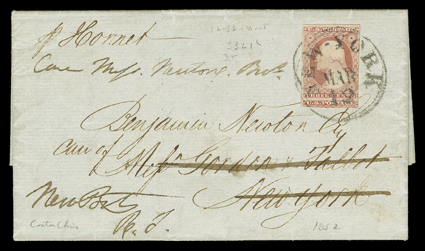 pr Hornet
Care Messrs Newton & Bro.
NEW-YORK
MAR
Benjamin Newton Esq
Care of
Messrs Gordon & Talbot
New York
R. I.
Canton China
1852